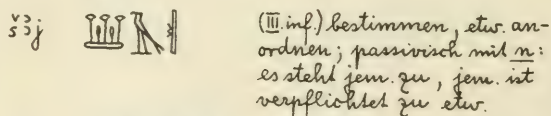 šꜣj 𓆷𓄿𓏛 (III. inf.) bestimmen, etw. an-
ordnen; passivisch mit n:
es steht jem. zu, jem. ist
verpflichtet zu etw.